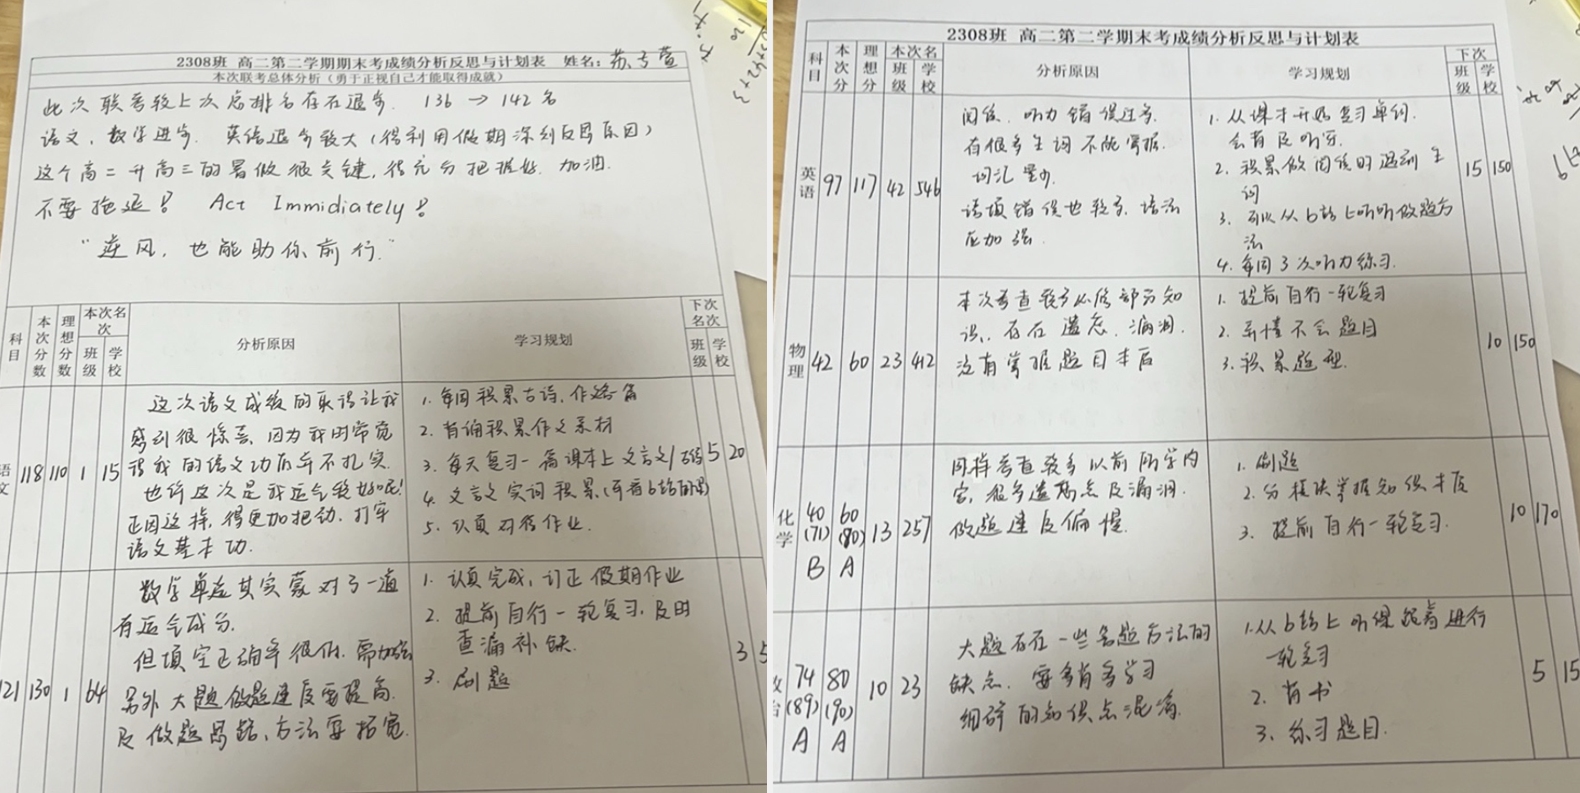 2308班 高二第二学期期末考成绩分析反思与计划表 姓名：苏子萱
本次联考总体分析（勇于正视自己才能取得成就）
此次联考较上次总排名存在退步. 136 → 142名
语文，数学进步. 英语退步较大（得利用假期深刻反思原因）
这个高二升高三的暑假很关键，得充分把握好. 加油.
不要拖延！ Act Immidiately！
“逆风，也能助你前行.”
科目 本次分数 理想分数 本次名次 班级 学校 分析原因 学习规划 下次名次 班级 学校
语文 118 110 1 15
这次语文成绩的取得让我
感到很惊喜、因为我时常觉
得我的语文功底并不扎实.
也许这次是我运气较好呢！
正因这样，得更加把劲. 打牢
语文基本功.
1. 每周积累古诗，作文各一篇
2. 背诵积累作文素材
3. 每天复习一篇课本上文言文/古诗
4. 文言文实词积累(可看b站的)
5. 认真对待作业.
5 20
121 130 1 64
数学单选其实蒙对了一道
有运气成分.
但填空正确率很低. 需加强
另外大题做题速度要提高.
及做题思路、方法要拓宽.
1. 认真完成，订正假期作业
2. 提前自行一轮复习. 及时
查漏补缺.
3. 刷题
3
2308班 高二第二学期末考成绩分析反思与计划表
科目 本次分 理想分 本次名 班级 学校 分析原因 学习规划 下次 班级 学校
英语 97 117 42 546
阅读、听力错误过多.
有很多生词不能掌握.
词汇量少.
语填错误也较多. 语法
应加强.
1. 从课本开始复习单词.
会背及听写.
2. 积累做阅读时遇到生
词
3. 可以从b站上听听做题方
法
4. 每周3次听力练习.
15 150
物理 42 60 23 412
本次考查较多必修部分知
识、存在遗忘、漏洞.
没有掌握题目本质
1. 提前自行一轮复习
2. 弄懂不会题目
3. 积累题型.
10 150
化学 40 (71) B 60 (80) A 13 257
同样考查较多以前所学内
容，很多遗忘点及漏洞.
做题速度偏慢.
1. 刷题
2. 分模块掌握知识本质
3. 提前自行一轮复习.
10 170
政治 74 (89) A 80 (90) A 10 23
大题存在一些答题方法的
缺点. 要多背多学习
细碎的知识点混淆.
1. 从b站上听课跟着进行
一轮复习
2. 背书
3. 练习题目.
5 15